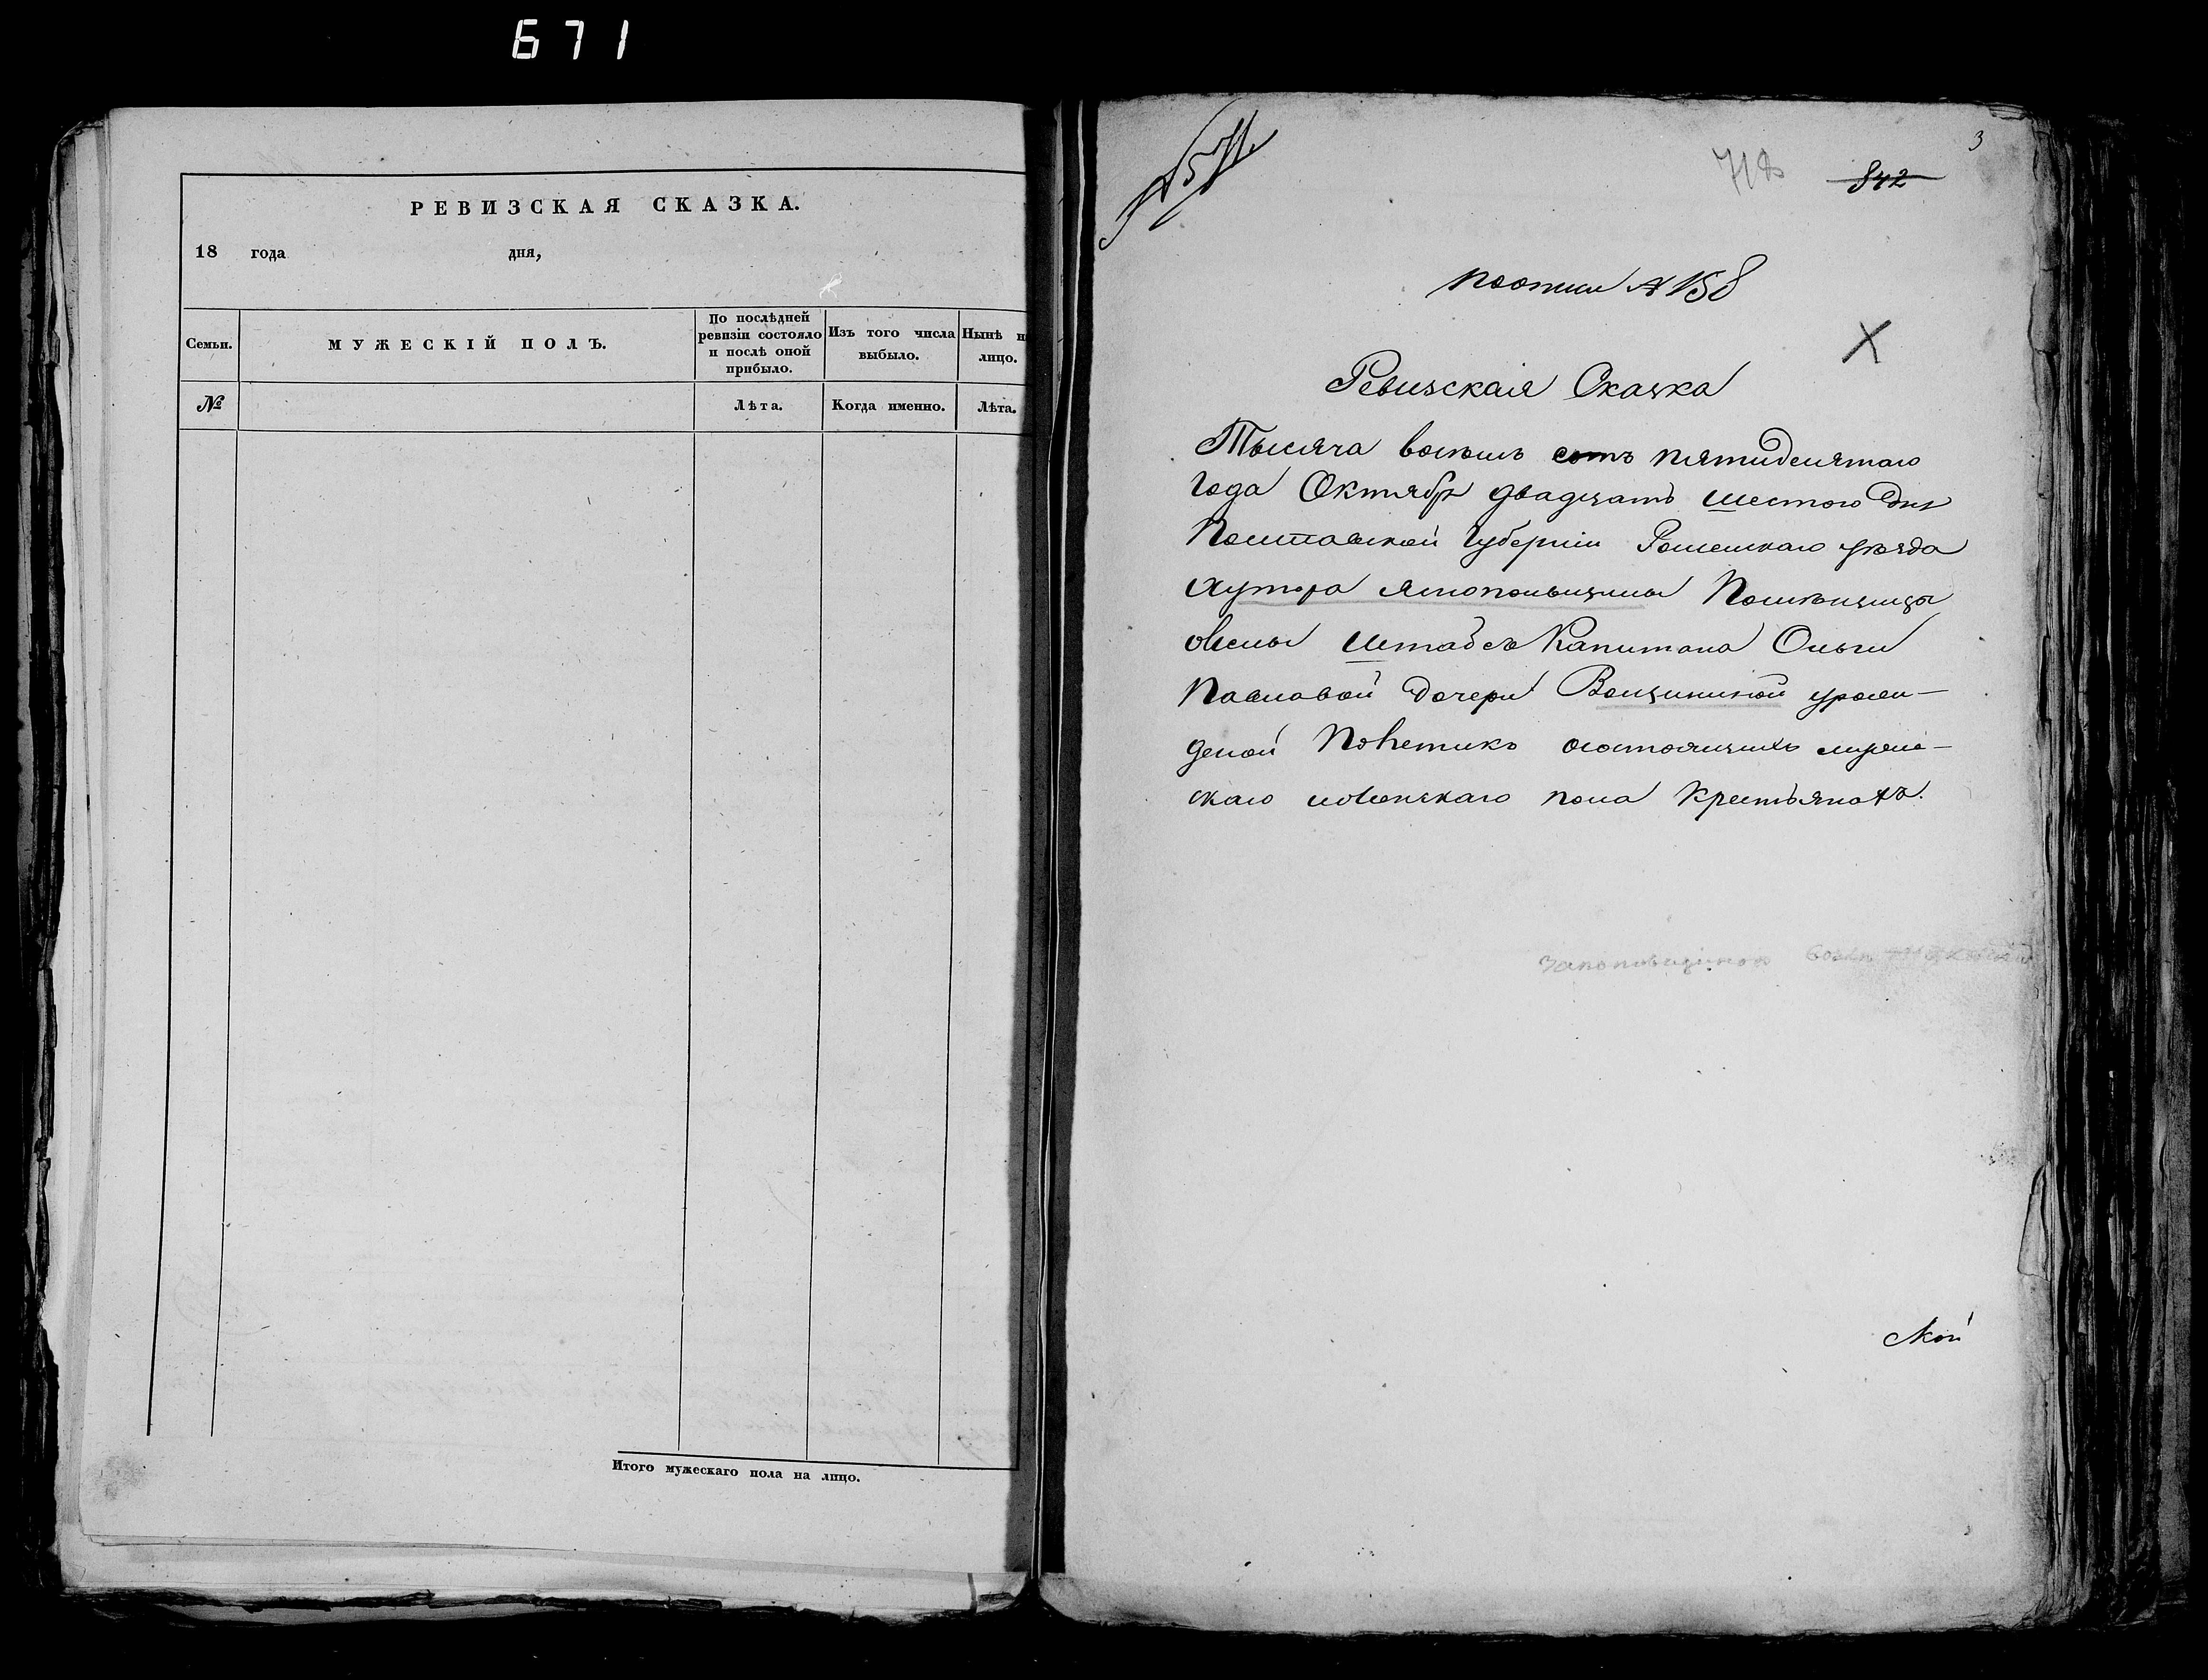 671
РЕВИЗСКАЯ СКАЗКА.
18 года дня,
Семьи. МУЖЕСКІЙ ПОЛЪ. По послѣдней ревизіи состояло и послѣ оной прибыло. Изъ того числа выбыло. Нынѣ н лицо.
№ Лѣта. Когда именно. Лѣта.
Итого мужескаго пола на лицо.
3
718
842
по описи № 158
Ревизская Сказка
Тысяча восемь сотъ пятидесятаго
Года Октября двадцать шестого дня
Полтавской Губерніи Роменскаго уѣзда
Хутора Помѣщицы
жены Штабсъ Капитана Ольги
Павловой дочери Волзинской урож-
деной состоящихъ муже-
скаго иженскаго пола Крестьянахъ.
ской